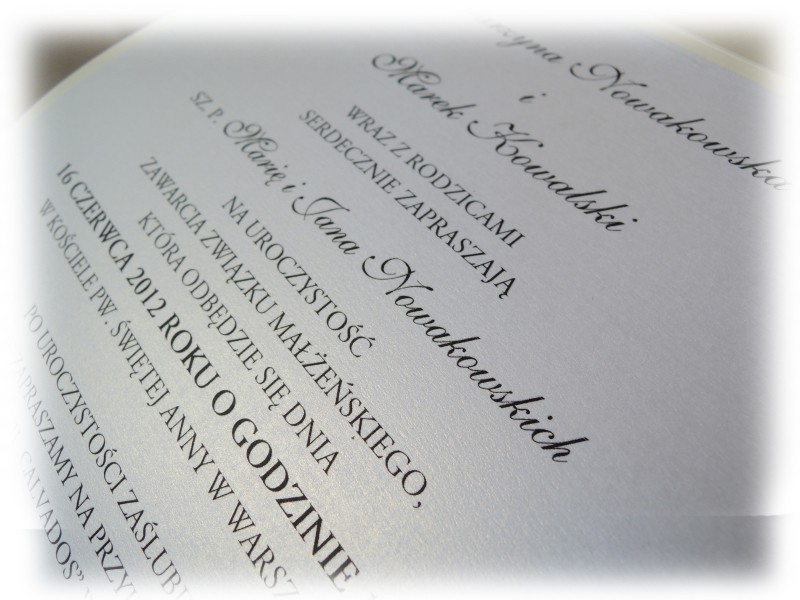 Nowakowska
i
Marek Kowalski
WRAZ Z RODZICAMI
SERDECZNIE ZAPRASZAJĄ
SZ. P. Marię i Jana Nowakowskich
NA UROCZYSTOŚĆ
ZAWARCIA ZWIĄZKU MAŁŻEŃSKIEGO,
KTÓRA ODBĘDZIE SIĘ DNIA
16 CZERWCA 2012 ROKU O GODZINIE
W KOŚCIELE PW. ŚWIĘTEJ ANNY W
PO UROCZYSTOŚCI
ZAPRASZAMY NA
CALVADOS"